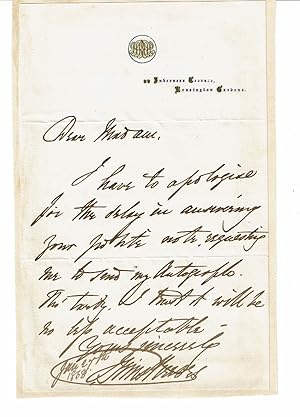 Inverness Terrace,
Kensington Gardens.
Dear Madam,
I have to apologise
for the delay in answering
your polite note, requesting
me to send my Autograph.
Tho' tardy, I trust it will be
no less acceptable
Yours sincerely
Jan 27th